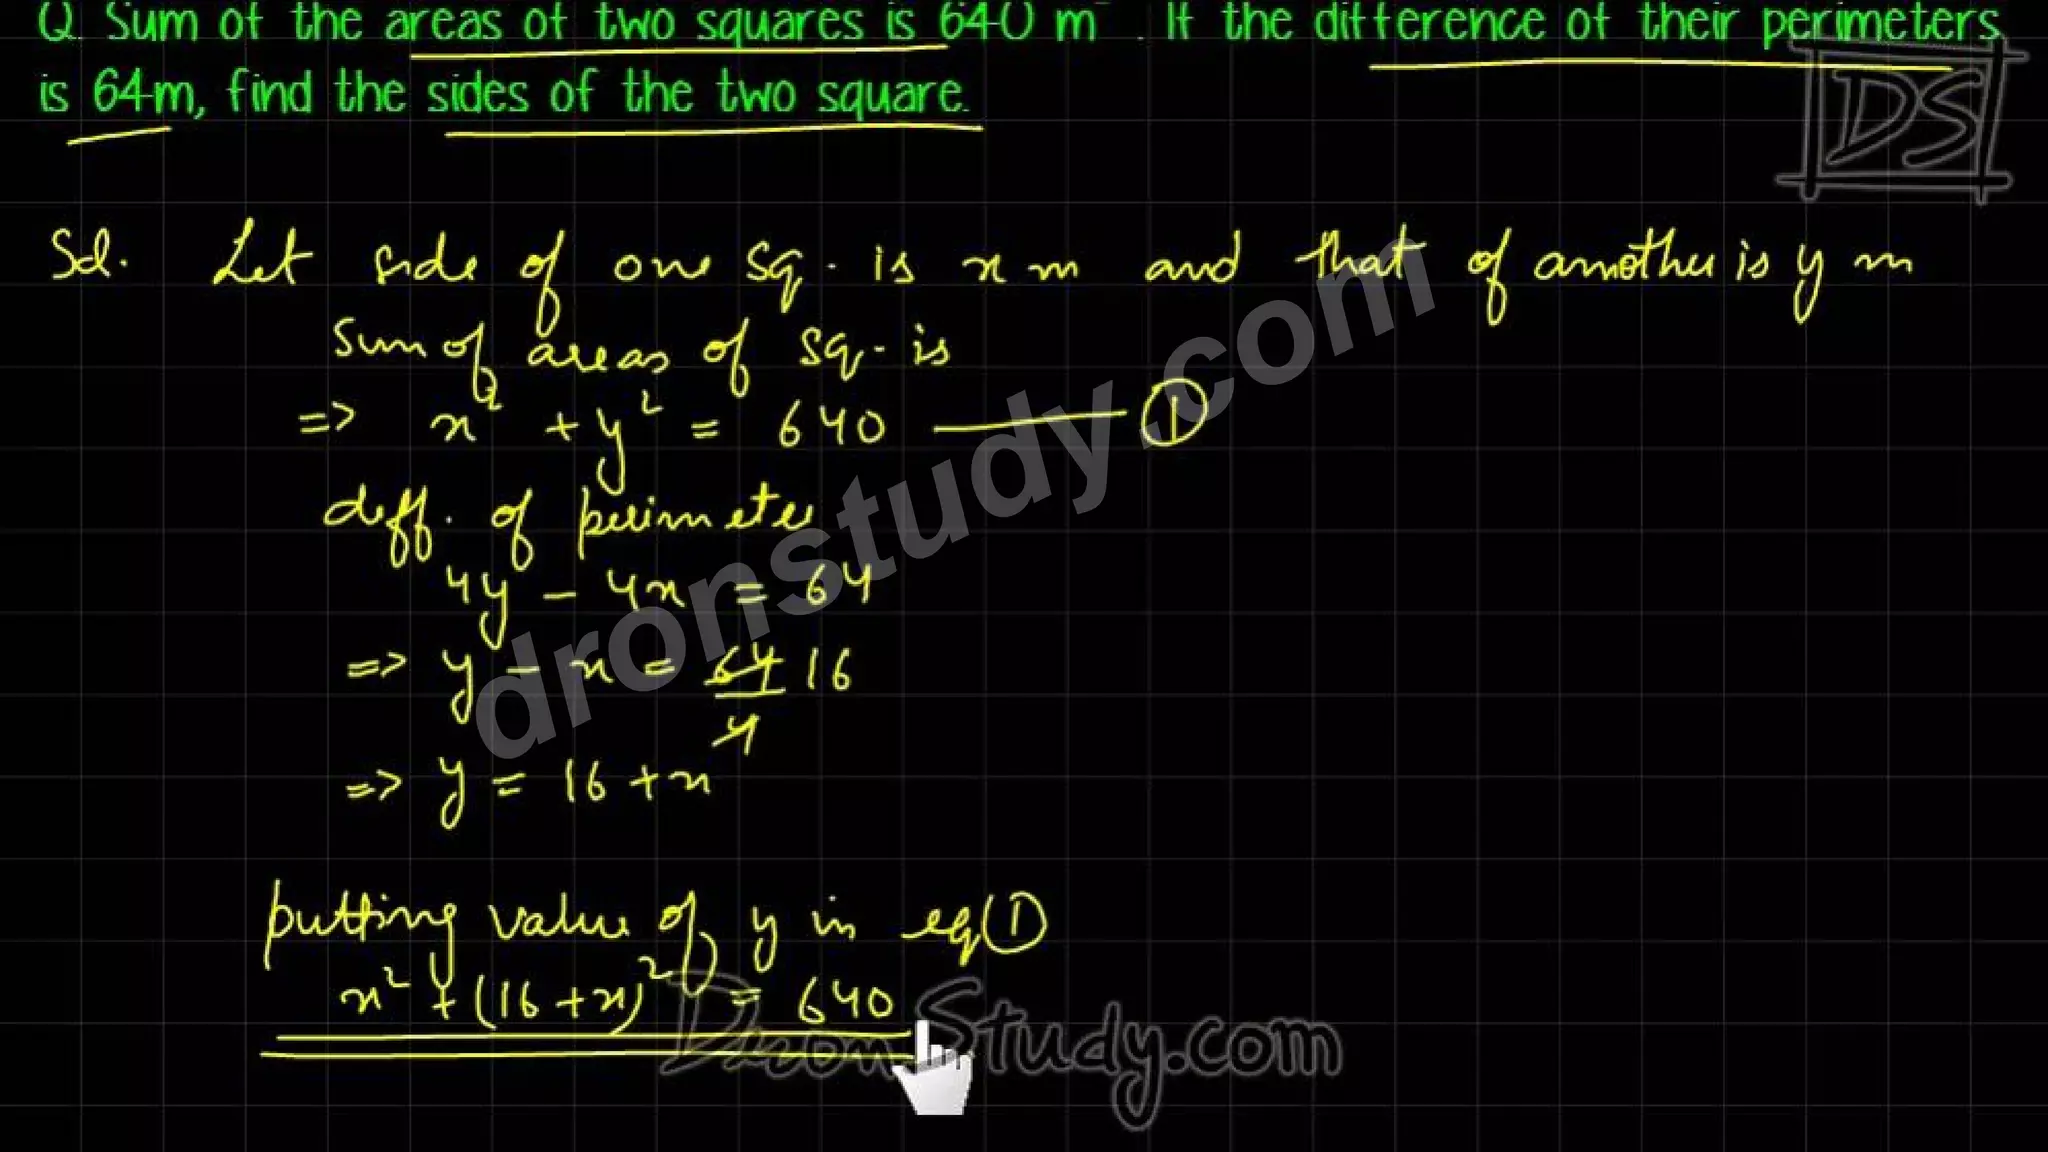 Q. Sum of the areas of two squares is 640 m². If the difference of their perimeters
is 64m, find the sides of the two square.
DS
Sol. Let side of one sq. is x m and that of another is y m
sum of areas of sq. is
=> x² + y² = 640 ——— ①
diff. of perimeter
4y - 4x = 64
=> y - x = 64/4 16
=> y = 16 + x
putting value of y in eq ①
x² + (16 + x)² = 640
dronstudy.com
DronStudy.com